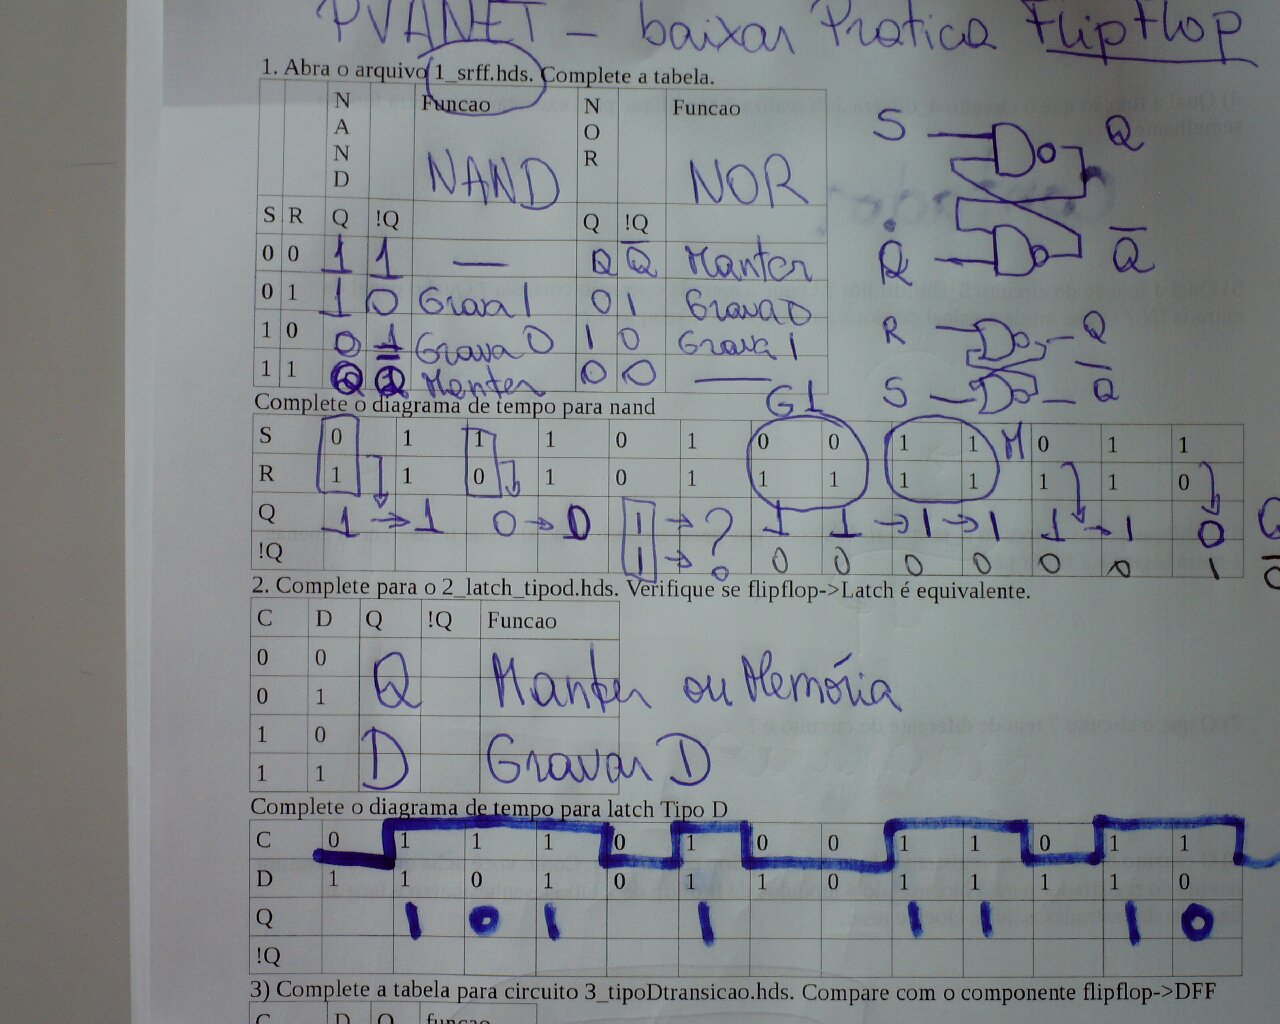 PVANET - baixar Pratica FlipFlop
1. Abra o arquivo 1_srff.hds. Complete a tabela.
N A N D Funcao N O R Funcao
NAND NOR
S R Q !Q Q !Q
0 0 1 1 — Q Q̅ Manter
0 1 1 0 Grava 1 0 1 Grava 0
1 0 0 1 Grava 0 1 0 Grava 1
1 1 Q Manter 0 0 —
S Q
R Q̅
R Q
S Q̅
Complete o diagrama de tempo para nand
G1
S 0 1 1 1 0 1 0 0 1 1 M 0 1 1
R 1 1 0 1 0 1 1 1 1 1 1 1 0
Q 1 → 1 0 → 0 1 → ? 1 1 → 1 → 1 1 → 1 0
!Q 1 → 0 0 0 0 0 0 1
2. Complete para o 2_latch_tipod.hds. Verifique se flipflop->Latch é equivalente.
C D Q !Q Funcao
0 0
0 1 Q Manter ou Memória
1 0
1 1 D Gravar D
Complete o diagrama de tempo para latch Tipo D
C 0 1 1 1 0 1 0 0 1 1 0 1 1
D 1 1 0 1 0 1 1 0 1 1 1 1 0
Q 1 0 1 1 1 1 1 0
!Q
3) Complete a tabela para circuito 3_tipoDtransicao.hds. Compare com o componente flipflop->DFF
C D Q funcao